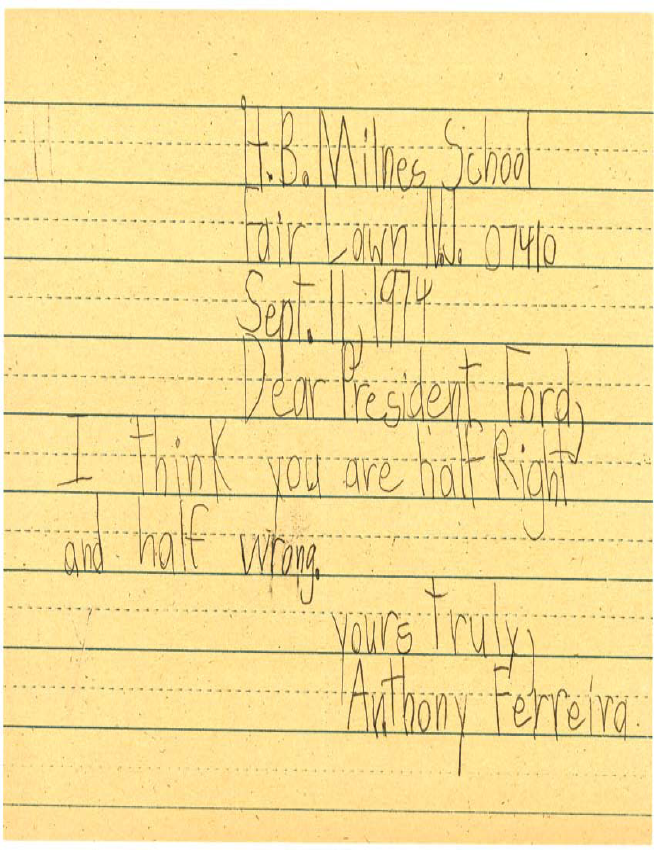 H.B. Milnes School
Fair Lawn N.J. 07410
Sept. 11, 1974
Dear President Ford,
I think you are half Right
and half wrong.
yours Truly,
Anthony Ferreira